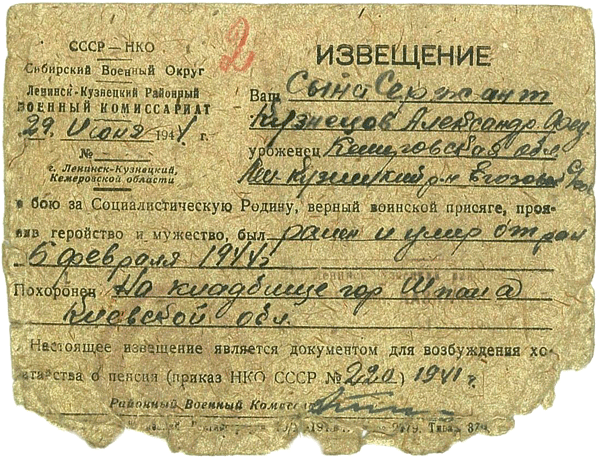 2
СССР—НКО
Сибирский Военный Округ
Ленинск-Кузнецкий Районный
ВОЕННЫЙ КОМИССАРИАТ
29 Июня 1944 г.
№ —
г. Ленинск-Кузнецкий,
Кемеровской области
ИЗВЕЩЕНИЕ
Ваш Сына Сержант
Кузнецов Александр Фед
уроженец Кемеровская обл
Лен-Кузнецкий р-н
в бою за Социалистическую Родину, верный воинской присяге, проя-
вив геройство и мужество, был ранен и умер от ран
6 февраля 1944 г
Похоронен На кладбище гор Шпола
Киевской обл.
Настоящее извещение является документом для возбуждения хо-
датайства о пенсии (приказ НКО СССР № 220) 1941 г.
Районный Военный Комисса